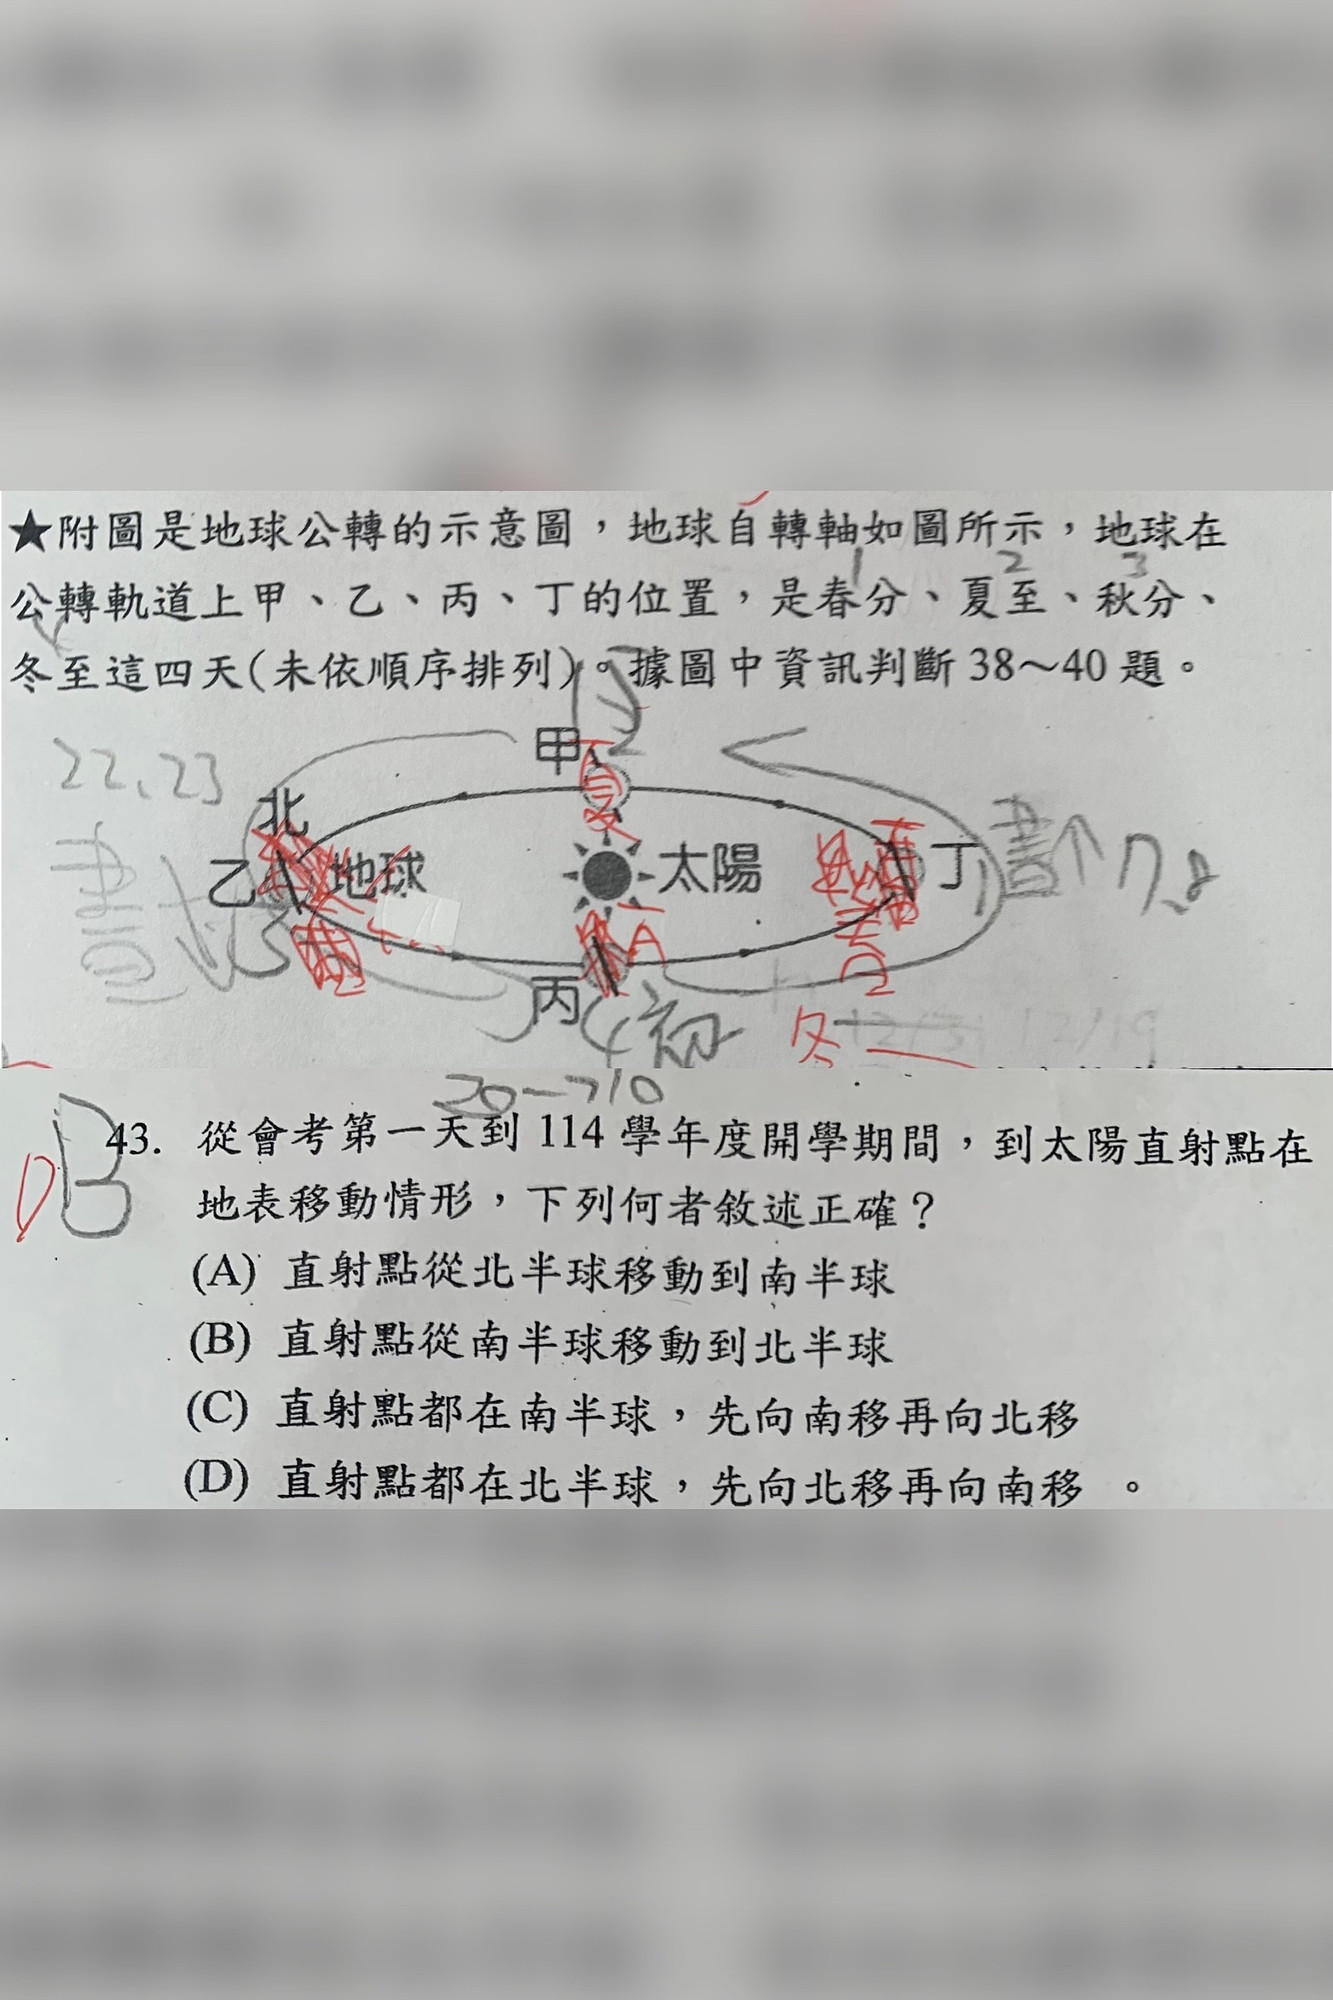 ★附圖是地球公轉的示意圖，地球自轉軸如圖所示，地球在
1 2 3
公轉軌道上甲、乙、丙、丁的位置，是春分、夏至、秋分、
冬至這四天(未依順序排列)。據圖中資訊判斷 38～40 題。
22、23
甲
夏
北
乙 地球 太陽 丁
晝 晝↑ 7、8
丙
4初
冬
12/19
20-7/10
D B 43. 從會考第一天到 114 學年度開學期間，到太陽直射點在
地表移動情形，下列何者敘述正確？
(A) 直射點從北半球移動到南半球
(B) 直射點從南半球移動到北半球
(C) 直射點都在南半球，先向南移再向北移
(D) 直射點都在北半球，先向北移再向南移 。